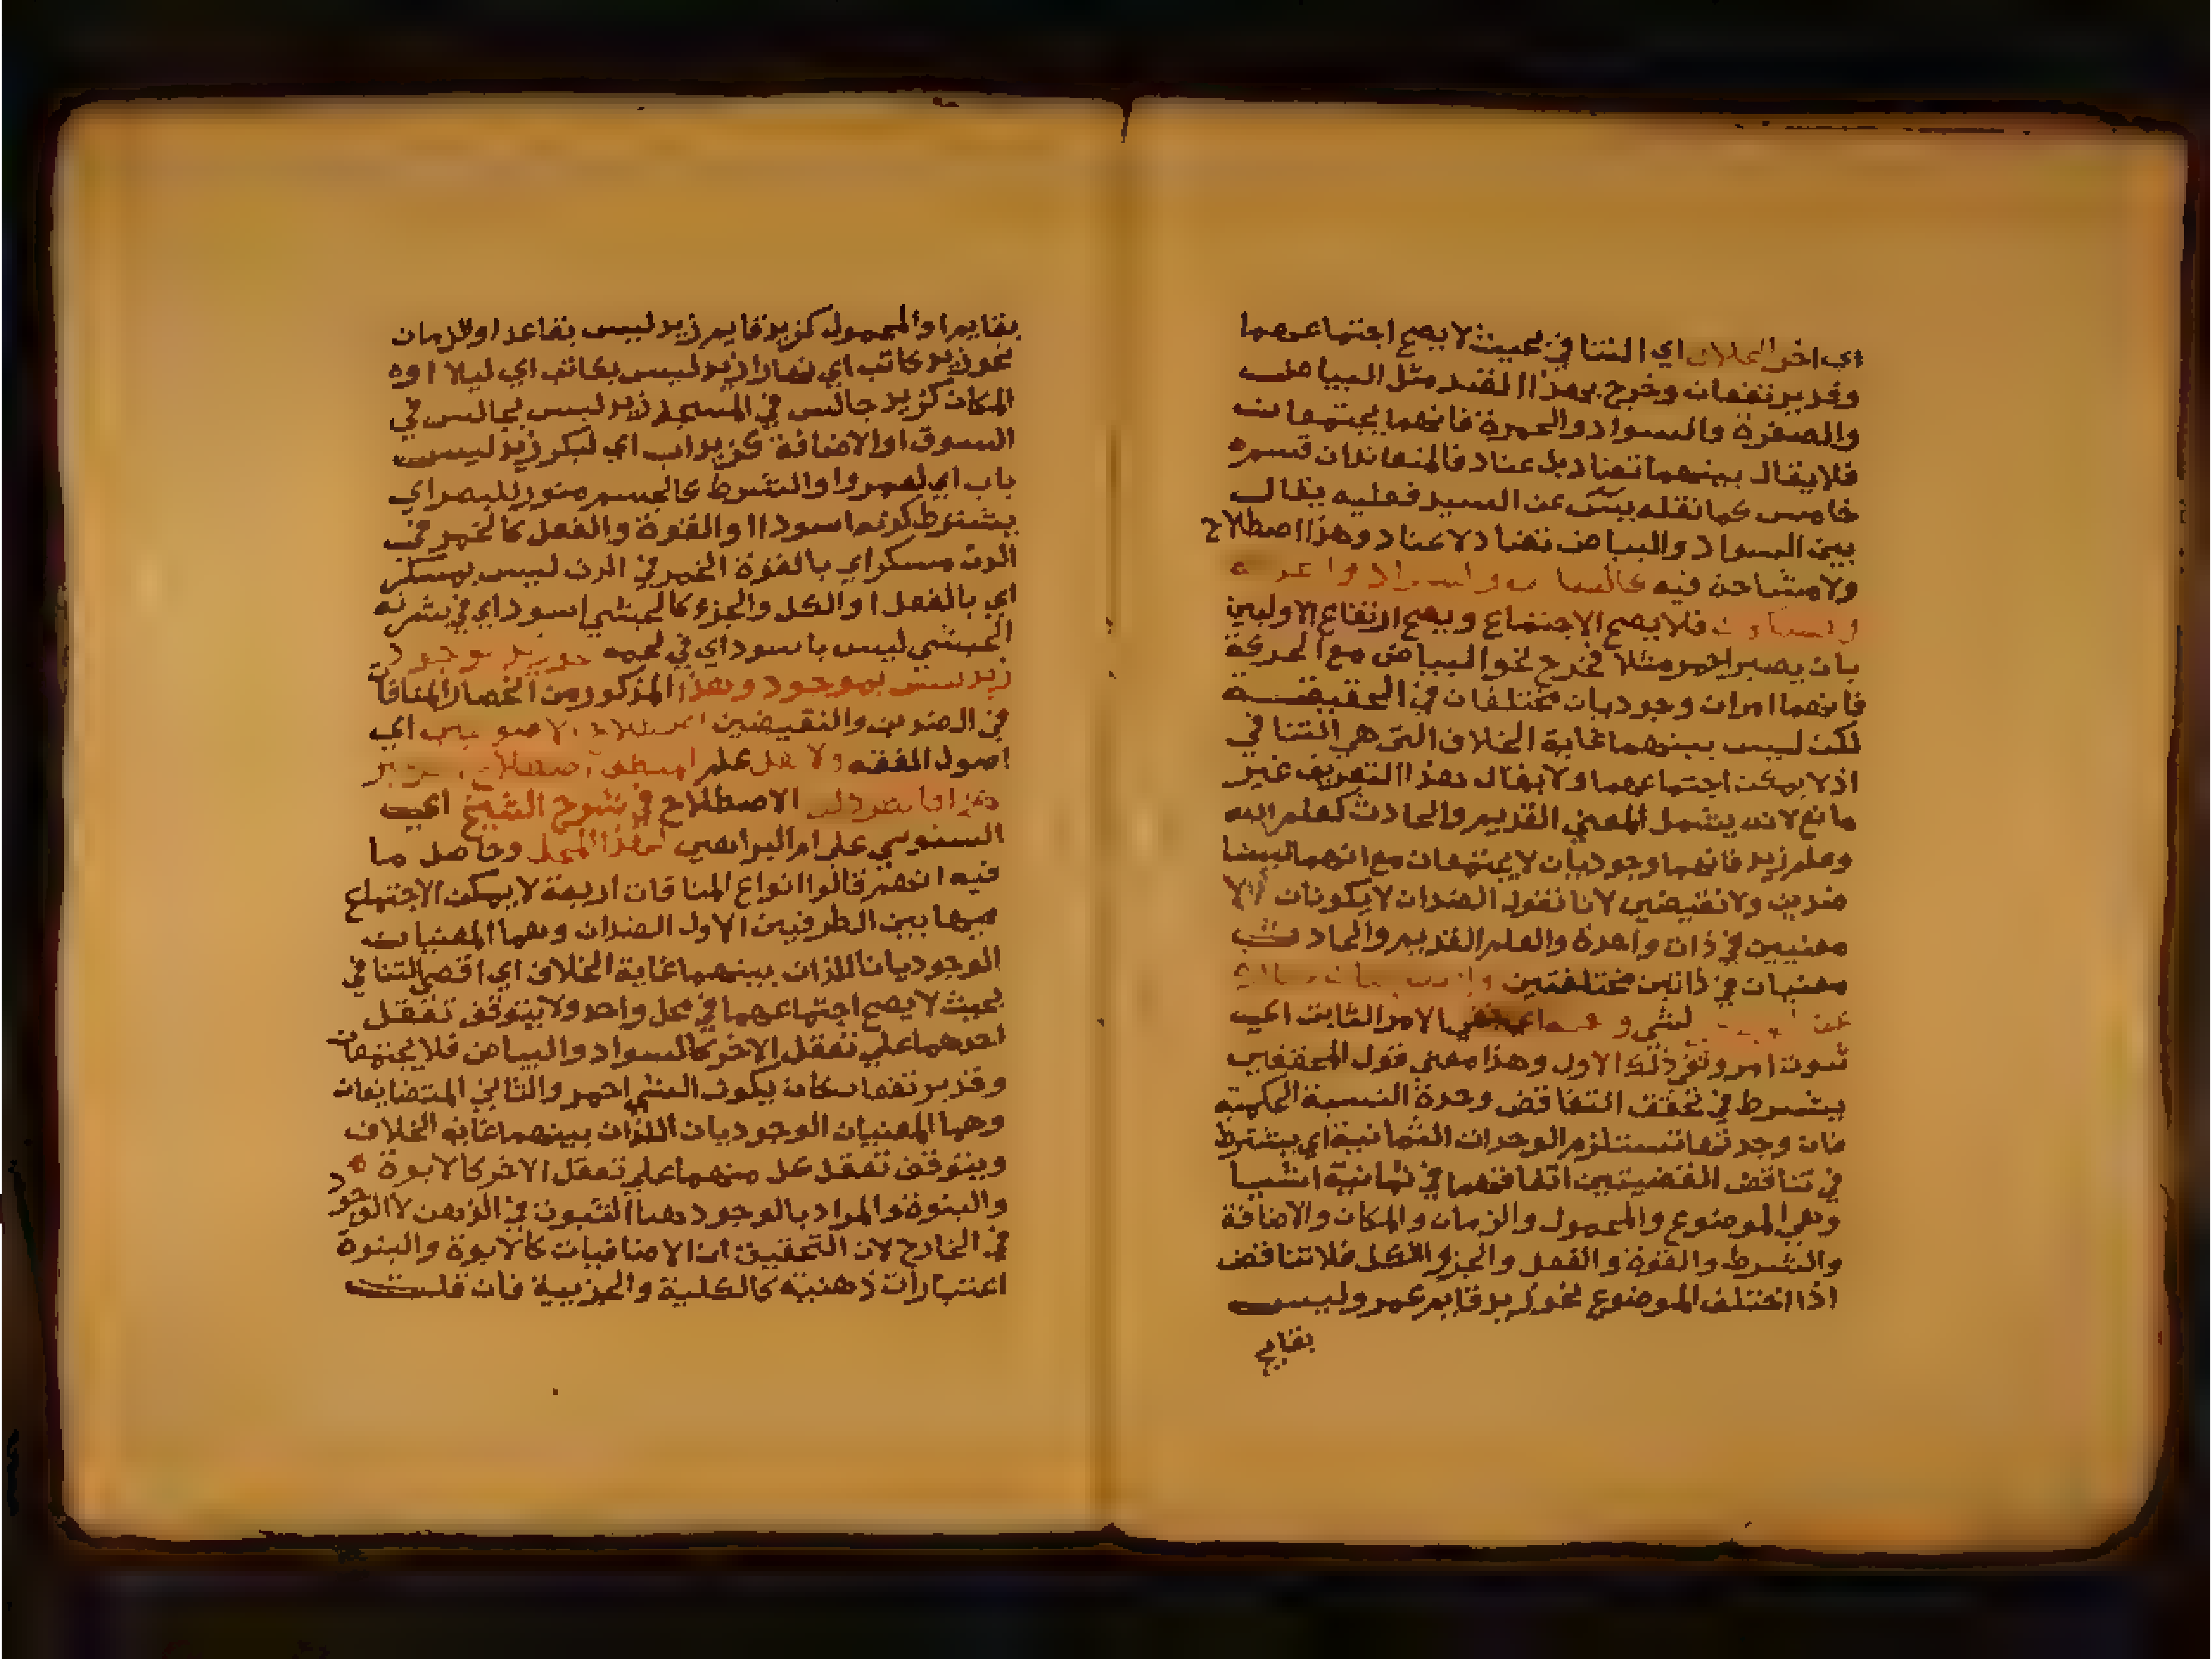 اي اخر الخلاف اي التنافي بحيث لا يصح اجتماعهما
وقد يرتفعان وخرج بهذا القيد مثل البياض
والصفرة والسواد والحمرة فانهما يجتمعان
فلا يقال بينهما تضاد بل عناد فالمتعاندان قسم
خامس كما نقله يس عن السيد فعليه يقال
بين السواد والبياض تضاد لا عناد وهذا اصطلاح
ولا مشاحن فيه
فلا يصح الاجتماع ويصح ارتفاع الاولين
بان يصير احمر مثلا فخرج نحو البياض مع الحركة
فانهما امران وجوديان مختلفان في الحقيقة
لكن ليس بينهما غاية الخلاف التي هي التنافي
اذ لا يمكن اجتماعهما ولا يقال هذا التعريف غير
مانع لانه يشمل المعني القديم والحادث كعلم الله
وعلم زيد فانهما وجوديان لا يجتمعان مع انهما ليسا
ضدين ولا نقيضين لانا نقول الضدان لا يكونان الا
معنيين في ذات واحدة والعلم القديم والحادث
معنيان في ذاتين مختلفتين
عن لشي و نفي الامر الثابت اي
ثبوت امر ونفي ذلك الاول وهذا معني قول المحققين
يشترط في تحقق التناقض وحدة النسبة الحكمية
فان وحدتها تستلزم الوحدات الثمانية اي يشترط
في تناقض القضيتين اتفاقهما في ثمانية اشيا
وهي الموضوع والمحمول والزمان والمكان والاضافة
والشرط والقوة والفعل والجزو الكل فلا تناقض
اذا اختلف الموضوع نحو زيد قايم عمر وليس
بقايم
بقايم او المحمول كزيد قايم زيد ليس بقاعد او الزمان
نحو زيد كاتب اي نهارا زيد ليس بكاتب اي ليلا او
المكان كزيد جالس في المسجد زيد ليس بجالس في
السوق او الاضافة كزيد اب اي لبكر زيد ليس
باب اي لعمرو او الشرط كالجسم منور للبصر اي
بشرط كونه اسود او القوة والفعل كالخمر في
الدن مسكر اي بالقوة الخمر في الدن ليس بمسكر
اي بالفعل او الكل والجزء كالحبشي اسود اي في بشرته
الحبشي ليس باسود اي في لحمه نحو زيد موجود
زيد ليس بموجود وهذا المذكور من انحصار المنافاة
في الضدين والنقيضين اصطلاح الاصوليين اي
اصول الفقه ولاهل علم المنطق اصطلاح
الاصطلاح في شرح الشيخ اي
السنوسي علي ام البراهين لهذا المحل وحاصل ما
فيه انهم قالوا انواع المنافات اربعة لا يمكن الاجتماع
فيها بين الطرفين الاول الضدان وهما المعنيان
الوجوديان اللذان بينهما غاية الخلاف اي اقصي التنافي
بحيث لا يصح اجتماعهما في محل واحد ولا يتوقف تعقل
احدهما علي تعقل الاخر كالسواد والبياض فلا يجتمعان
وقد يرتفعان كان يكون الشي احمر والثاني المتضايفان
وهما المعنيان الوجوديان اللذان بينهما غاية الخلاف
ويتوقف تعقل كل منهما علي تعقل الاخر كالابوة
والبنوة والمراد بالوجود هنا الثبوت في الذهن لا الوجود
في الخارج لان التحقيق ان الاضافيات كالابوة والبنوة
اعتبارات ذهنية كالكلية والجزيية فان قلت